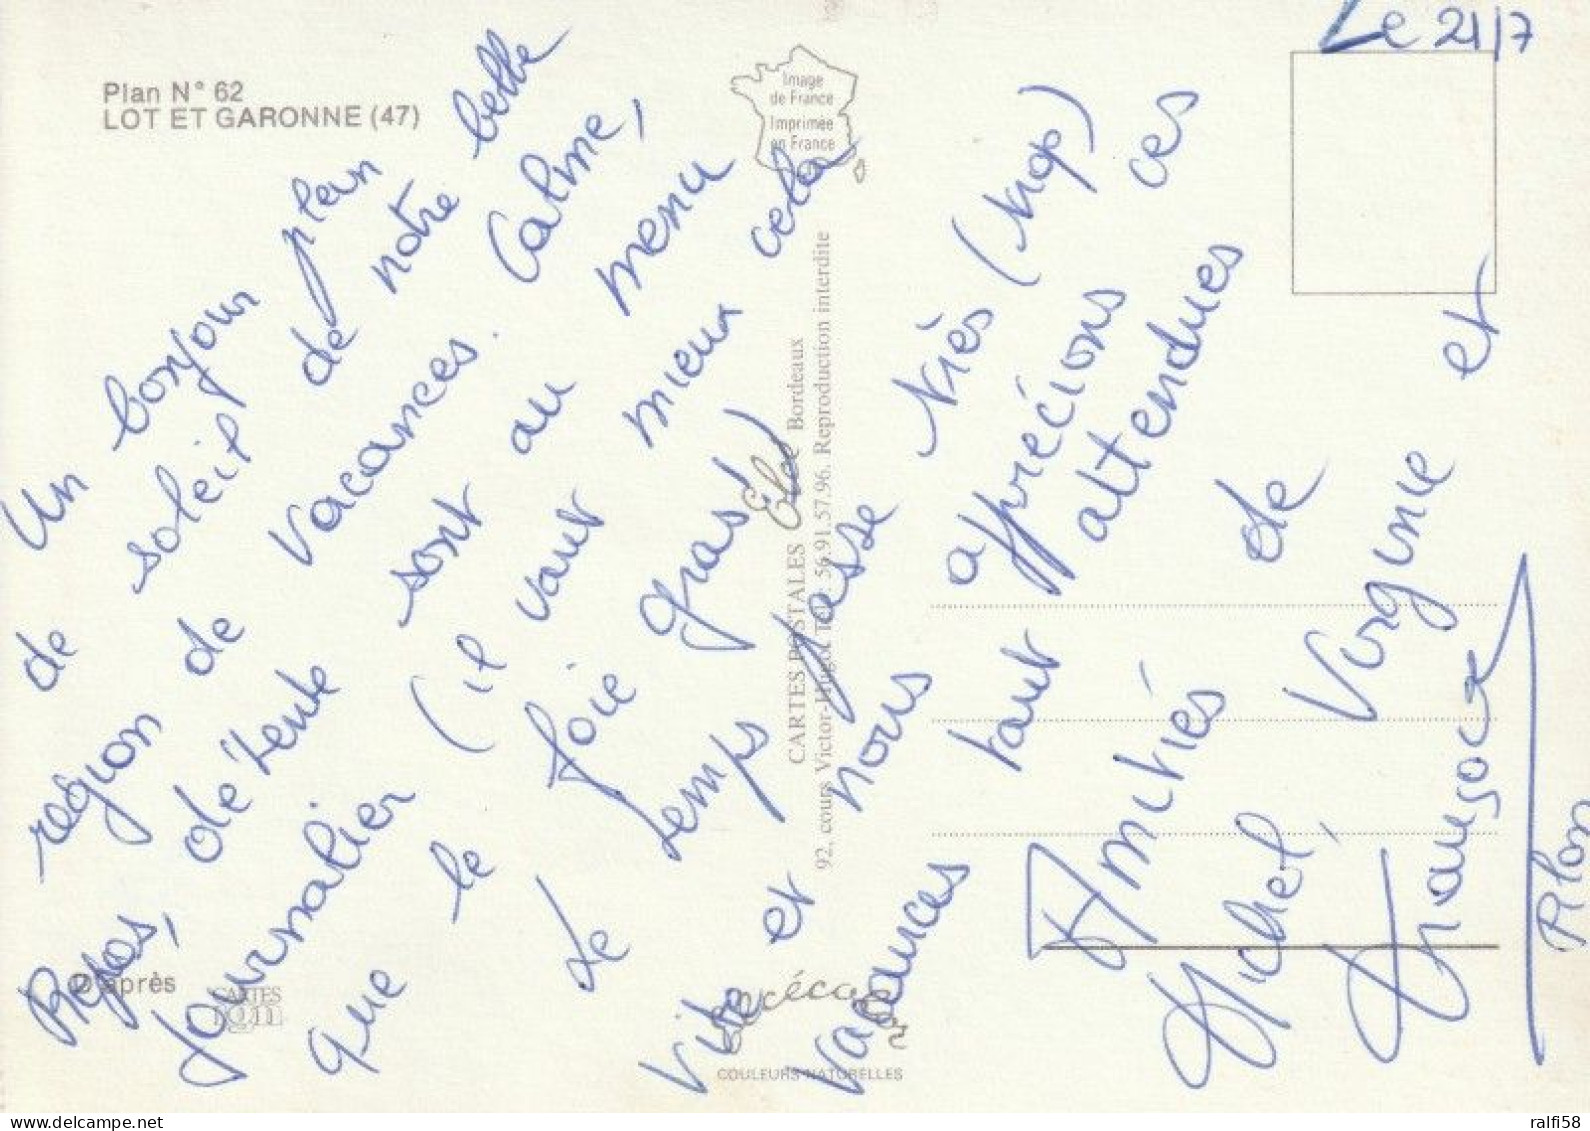 Le 21/7
Plan N° 62
LOT ET GARONNE (47)
Image
de France
Imprimée
en France
Un bonjour plein
de soleil de notre belle
région de vacances. Calme,
Repos, détente sont au menu
journalier (il vaut mieux cela
que le foie gras!)
Le temps passe
Vite et nous
Vacances tant attendues
apprécions ces
Amitiés de
Michel, Virginie et
Françoise
CARTES POSTALES Elce Bordeaux
92, cours Victor-Hugo. Tél. 56.91.57.96. Reproduction interdite
D'après
CARTES
IGN
COULEURS NATURELLES
delcampe.net
ralfi58